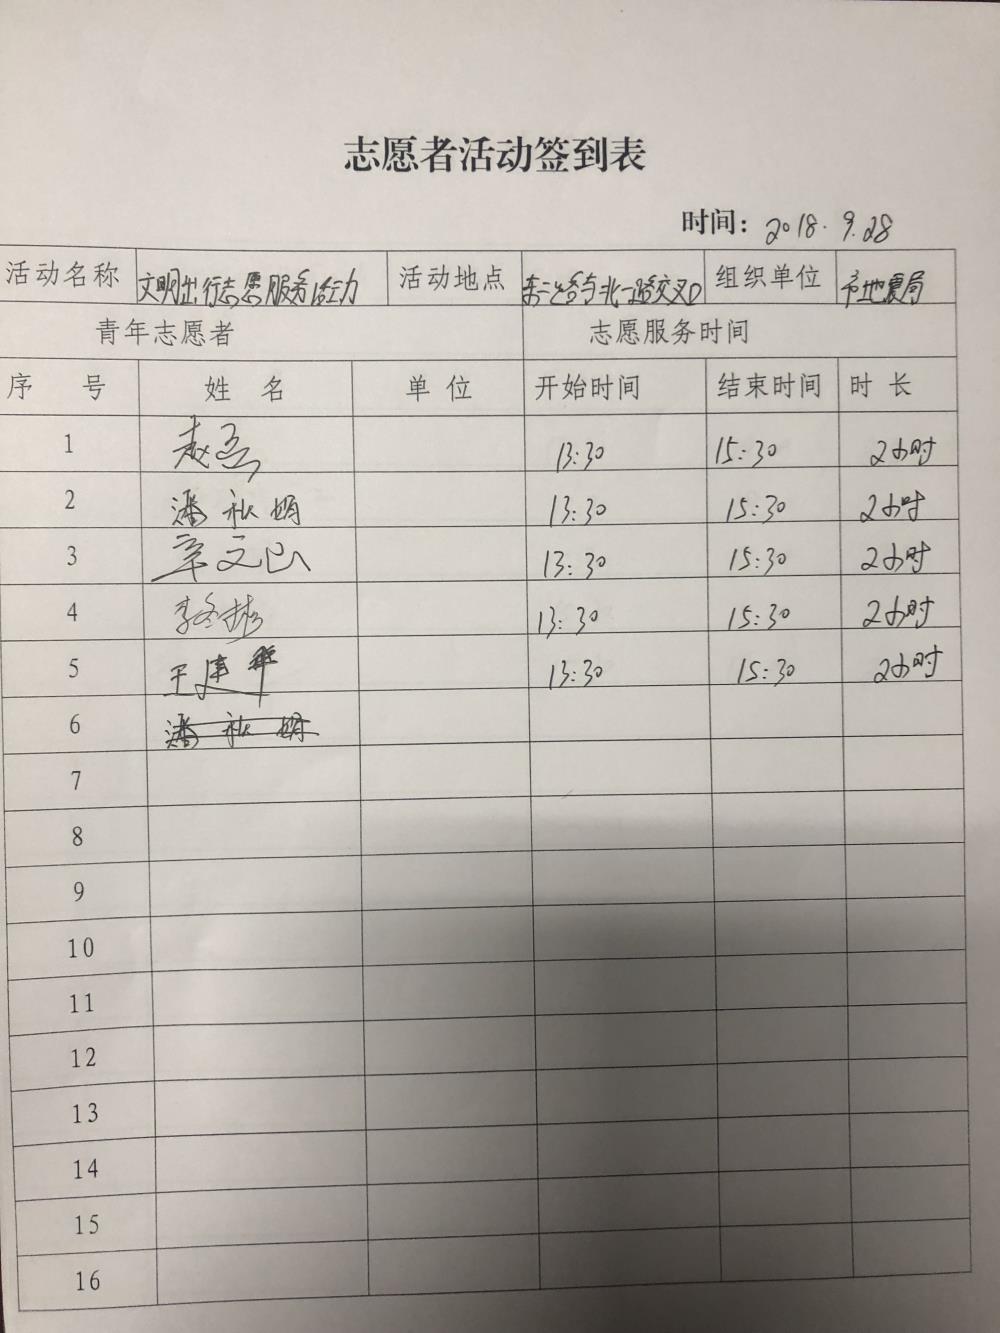 志愿者活动签到表
时间：2018.9.28
活动名称 文明出行志愿服务活动 活动地点 东二路与北一路交叉口 组织单位 市地震局
青年志愿者 志愿服务时间
序 号 姓 名 单 位 开始时间 结束时间 时 长
1 赵 13:30 15:30 2小时
2 潘秋娟 13:30 15:30 2小时
3 辛文 13:30 15:30 2小时
4 李冬梅 13:30 15:30 2小时
5 王 13:30 15:30 2小时
6 潘秋娟
7
8
9
10
11
12
13
14
15
16